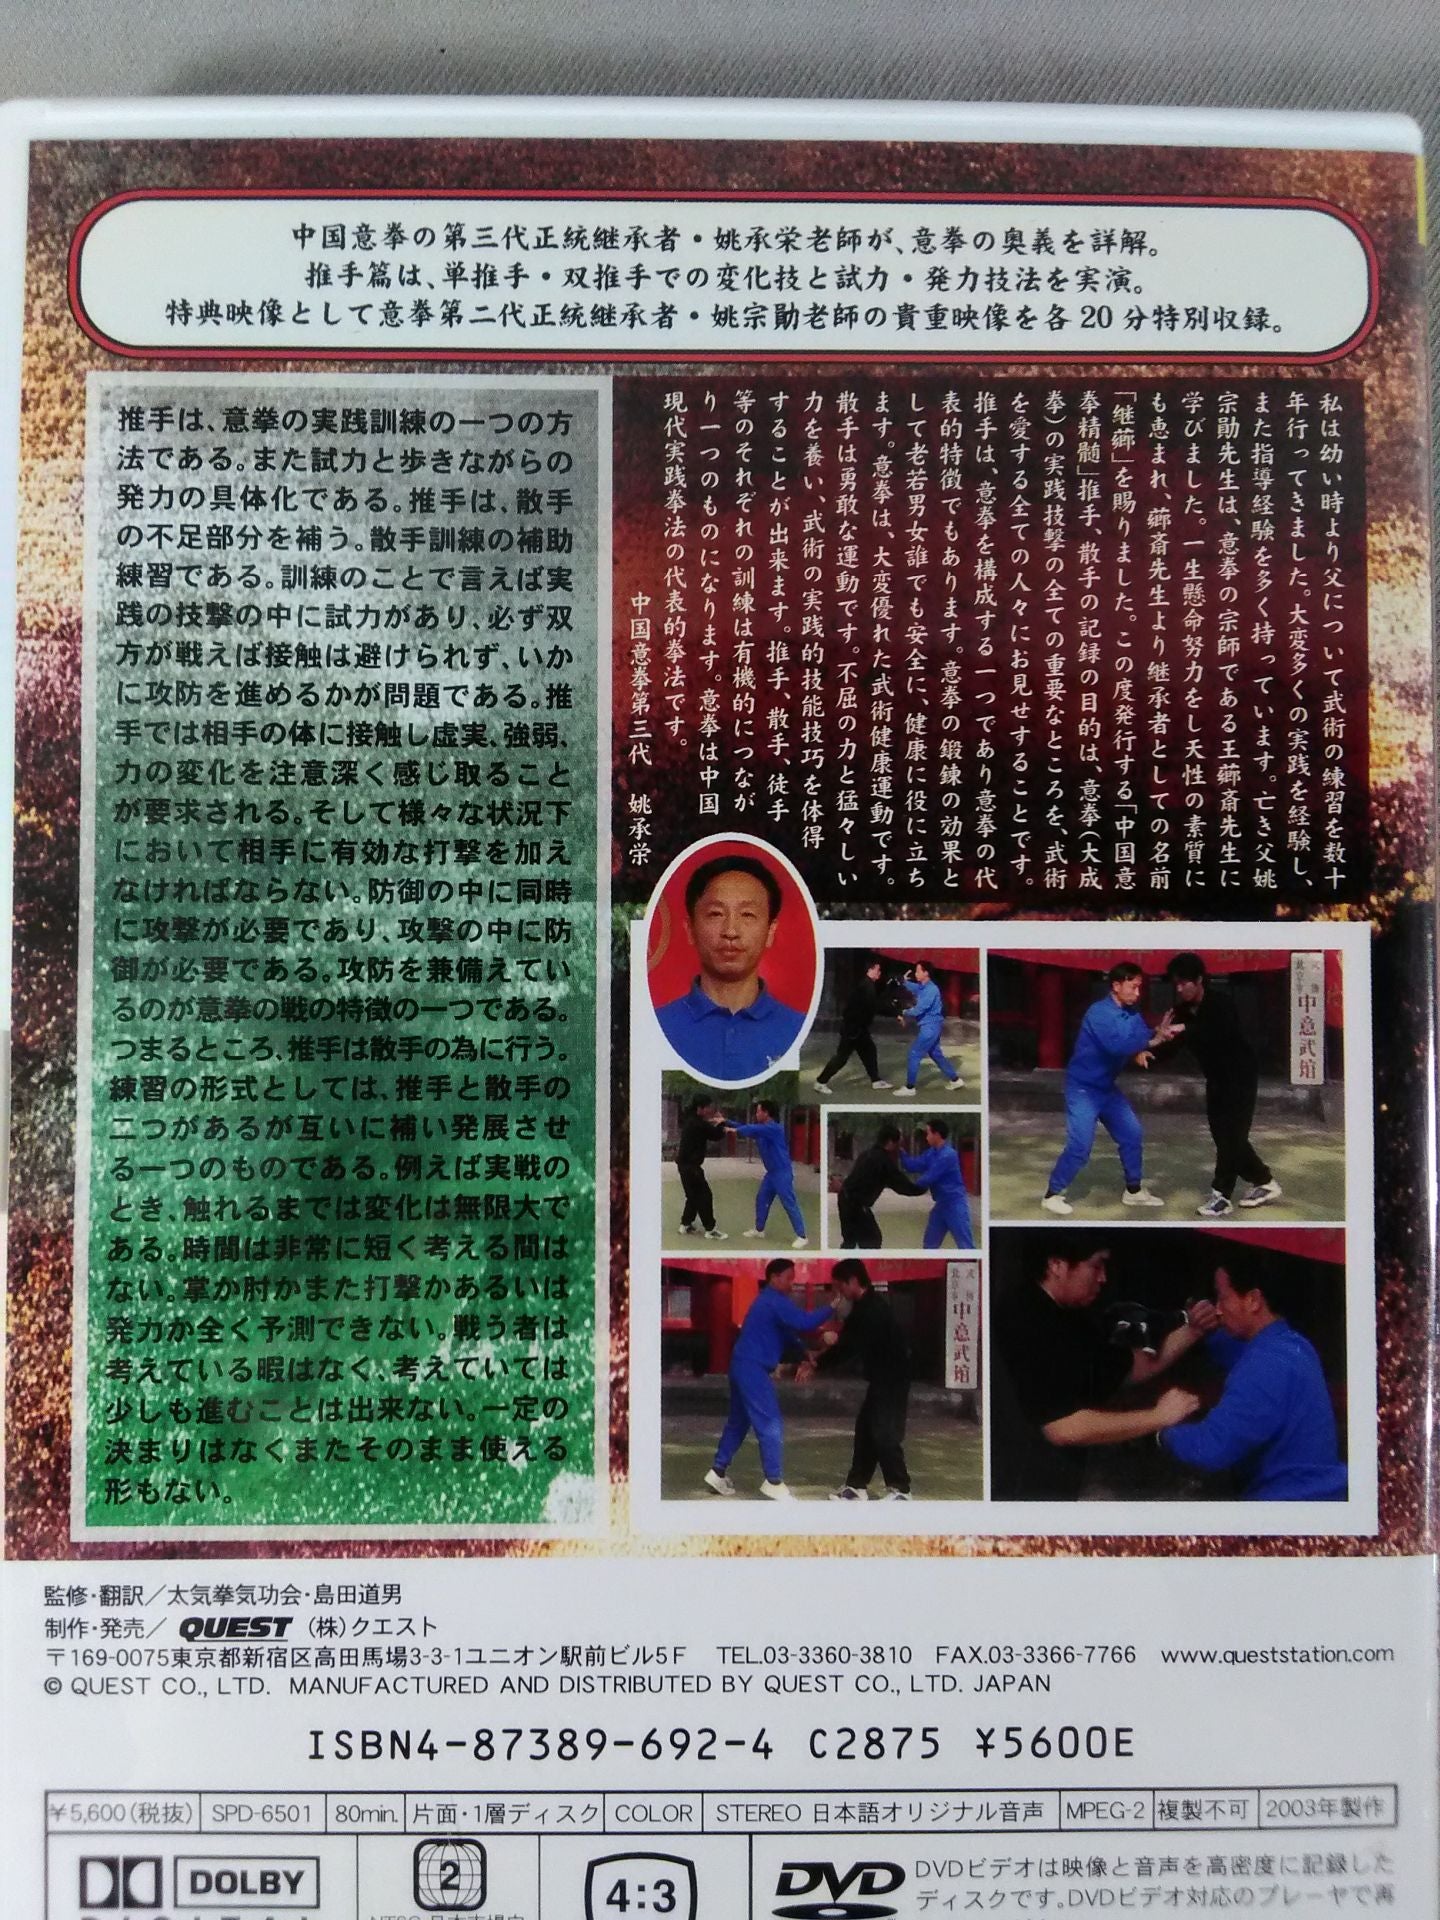 中国意拳の第三代正統継承者・姚承栄老師が、意拳の奥義を詳解。
推手篇は、単推手・双推手での変化技と試力・発力技法を実演。
特典映像として意拳第二代正統継承者・姚宗勛老師の貴重映像を各20分特別収録。
私は幼い時より父について武術の練習を数十
年行ってきました。大変多くの実践を経験し、
また指導経験を多く持っています。亡き父姚
宗勛先生は、意拳の宗師である王薌斎先生に
学びました。一生懸命努力をし天性の素質に
も恵まれ、薌斎先生より継承者としての名前
「継薌」を賜りました。この度発行する「中国意
拳精髄」推手、散手の記録の目的は、意拳（大成
拳）の実践技撃の全ての重要なところを、武術
を愛する全ての人々にお見せすることです。
推手は、意拳を構成する一つであり意拳の代
表的特徴でもあります。意拳の鍛錬の効果と
して老若男女誰でも安全に、健康に役に立ち
ます。意拳は、大変優れた武術健康運動です。
散手は勇敢な運動です。不屈の力と猛々しい
力を養い、武術の実践的技能技巧を体得
することが出来ます。推手、散手、徒手
等のそれぞれの訓練は有機的につなが
り一つのものになります。意拳は中国
現代実践拳法の代表的拳法です。
中国意拳第三代 姚承栄
推手は、意拳の実践訓練の一つの方
法である。また試力と歩きながらの
発力の具体化である。推手は、散手
の不足部分を補う。散手訓練の補助
練習である。訓練のことで言えば実
践の技撃の中に試力があり、必ず双
方が戦えば接触は避けられず、いか
に攻防を進めるかが問題である。推
手では相手の体に接触し虚実、強弱、
力の変化を注意深く感じ取ること
が要求される。そして様々な状況下
において相手に有効な打撃を加え
なければならない。防御の中に同時
に攻撃が必要であり、攻撃の中に防
御が必要である。攻防を兼備えてい
るのが意拳の戦の特徴の一つである。
つまるところ、推手は散手の為に行う。
練習の形式としては、推手と散手の
二つがあるが互いに補い発展させ
る一つのものである。例えば実戦の
とき、触れるまでは変化は無限大で
ある。時間は非常に短く考える間は
ない。掌か肘かまた打撃かあるいは
発力か全く予測できない。戦う者は
考えている暇はなく、考えていては
少しも進むことは出来ない。一定の
決まりはなくまたそのまま使える
形もない。
中意武館
中意武館
監修・翻訳／太気拳気功会・島田道男
制作・発売／ QUEST （株）クエスト
〒169-0075東京都新宿区高田馬場3-3-1ユニオン駅前ビル5F TEL.03-3360-3810 FAX.03-3366-7766 www.queststation.com
© QUEST CO., LTD. MANUFACTURED AND DISTRIBUTED BY QUEST CO., LTD. JAPAN
ISBN4-87389-692-4 C2875 ¥5600E
¥5,600（税抜） SPD-6501 80min. 片面・1層ディスク COLOR STEREO 日本語オリジナル音声 MPEG-2 複製不可 2003年製作
DOLBY
2
4:3
DVD
DVDビデオは映像と音声を高密度に記録した
ディスクです。DVDビデオ対応のプレーヤで再